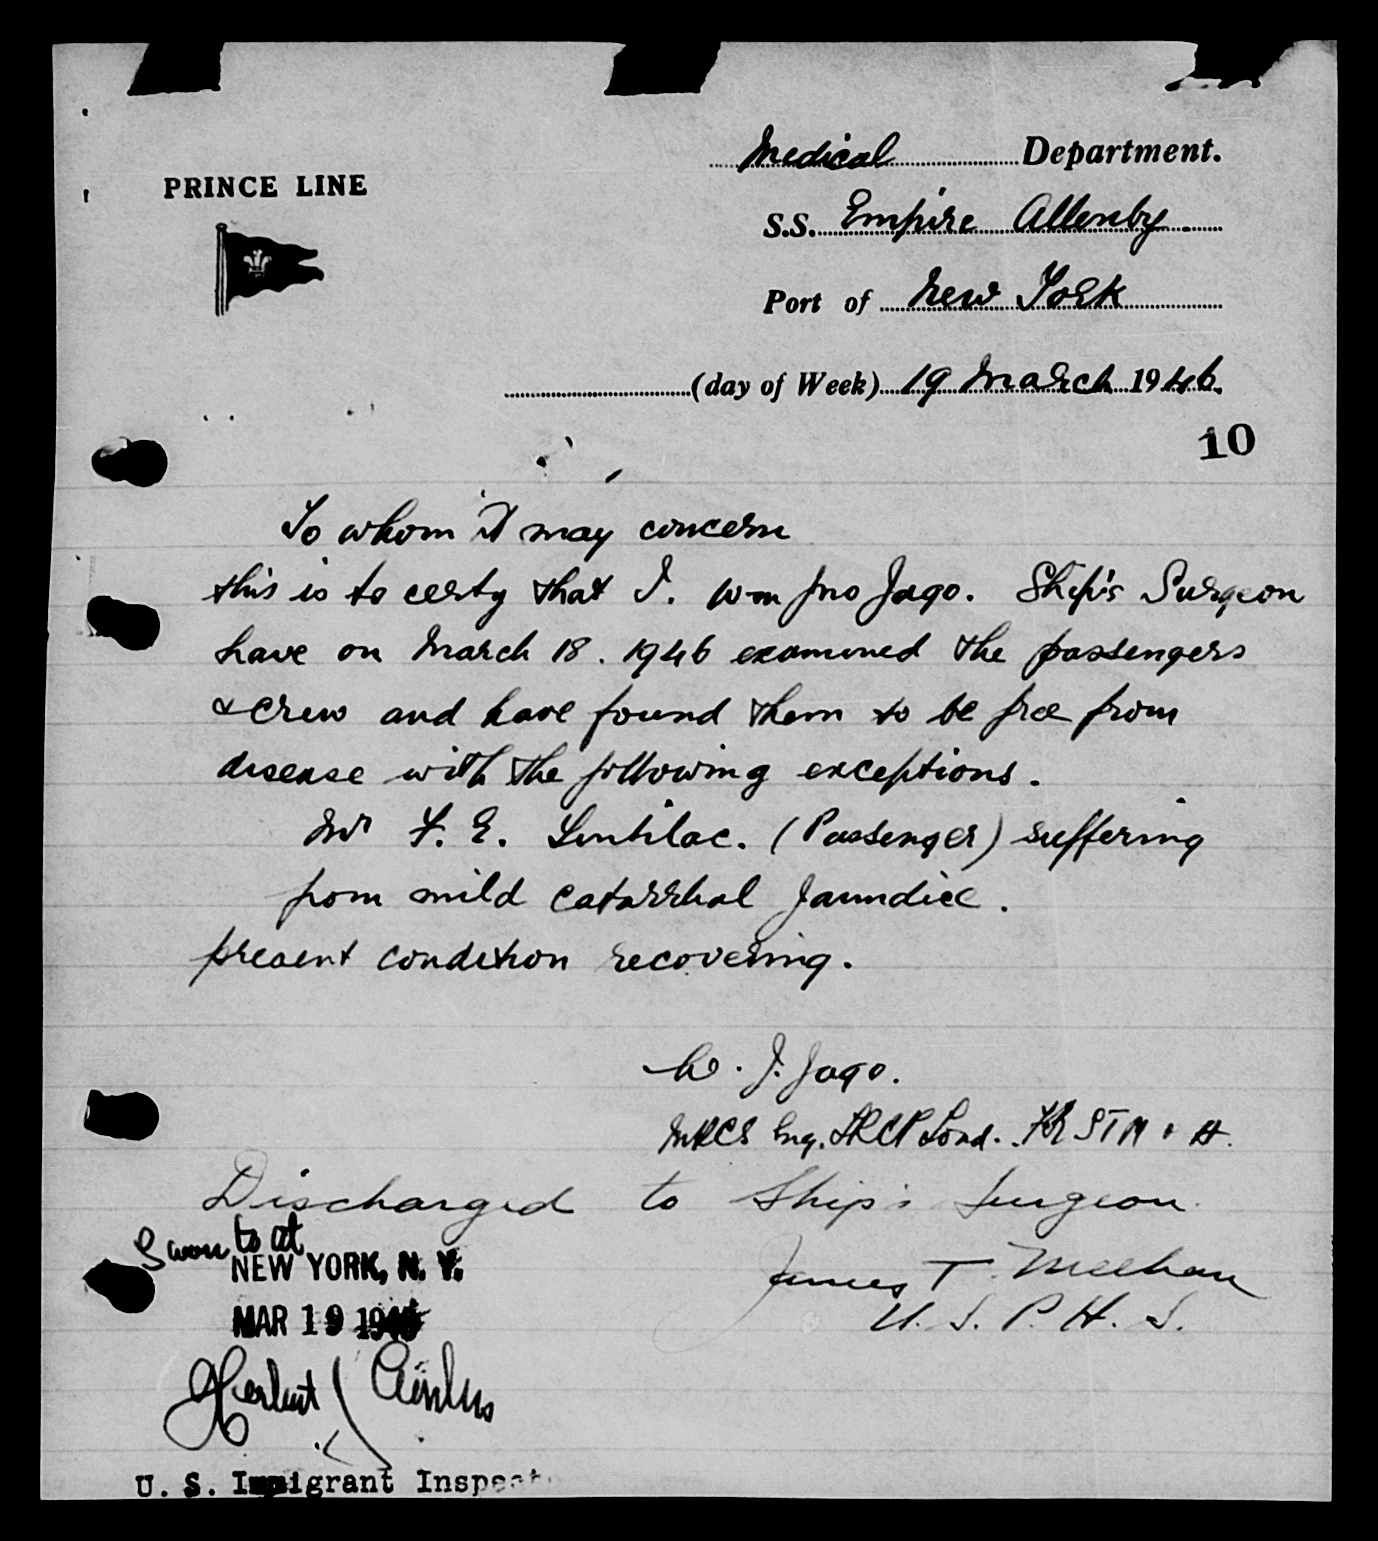 Medical Department.
PRINCE LINE
S.S. Empire Allenby
Port of New York
(day of Week) 19 March 1946.
10
To whom it may concern
this is to certy that I. Wm Jno Jago. Ship's Surgeon
have on March 18. 1946 examined the passengers
& crew and have found them to be free from
disease with the following exceptions.
Mr F. E. Lintilac. (Passenger) suffering
from mild catarrhal jaundice.
present condition recovering.
W. J. Jago.
MRCS Eng. LRCP Lond. FRSTM & H.
Discharged to Ship's Surgeon
Sworn to at
NEW YORK, N. Y.
MAR 19 1946
James T. Meehan
U. S. P. H. S.
Herbert
U. S. Immigrant Inspect